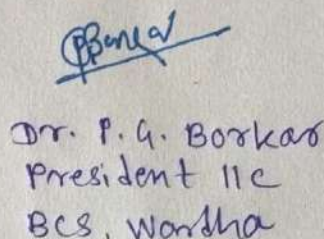 Dr. P. G. Borkar
President IIC
BCS, Wardha